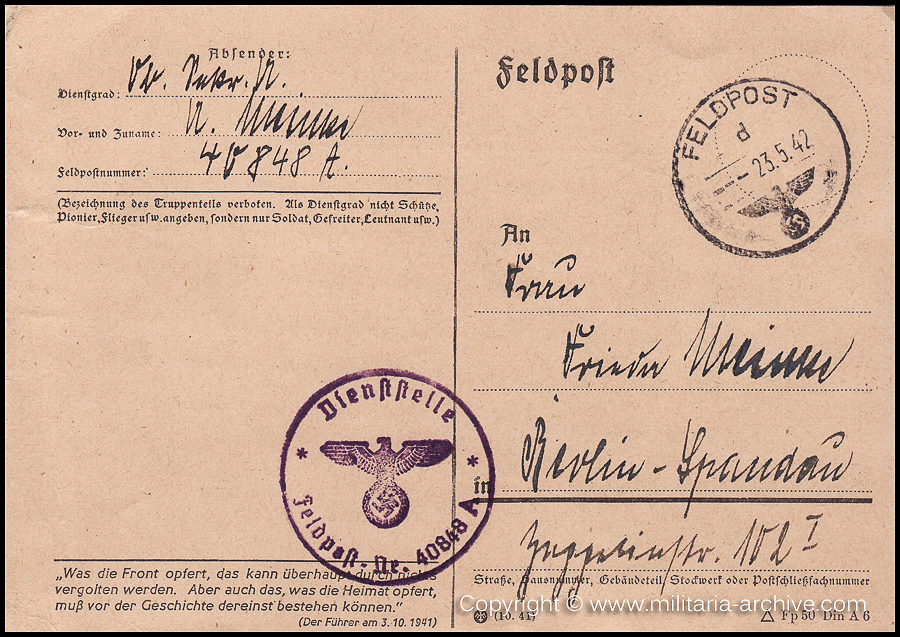 Absender:
Dienstgrad: Ob. Sekr. A.
Vor- und Zuname: A.
Feldpostnummer: 40848 A.
(Bezeichnung des Truppenteils verboten. Als Dienstgrad nicht Schütze,
Pionier, Flieger usw. angeben, sondern nur Soldat, Gefreiter, Leutnant usw.)
Feldpost
FELDPOST
d
-23.5.42
An
Frau
Frieda
Berlin-Spandau
in
Zeppelinstr. 102 I
Straße, Hausnummer, Gebäudeteil, Stockwerk oder Postschließfachnummer
Dienststelle
* *
Feldpost-Nr. 40848 A
„Was die Front opfert, das kann überhaupt durch nichts
vergolten werden. Aber auch das, was die Heimat opfert,
muß vor der Geschichte dereinst bestehen können.“
(Der Führer am 3.10.1941)
(10. 41)
Fp 50 Din A 6
Copyright © www.militaria-archive.com